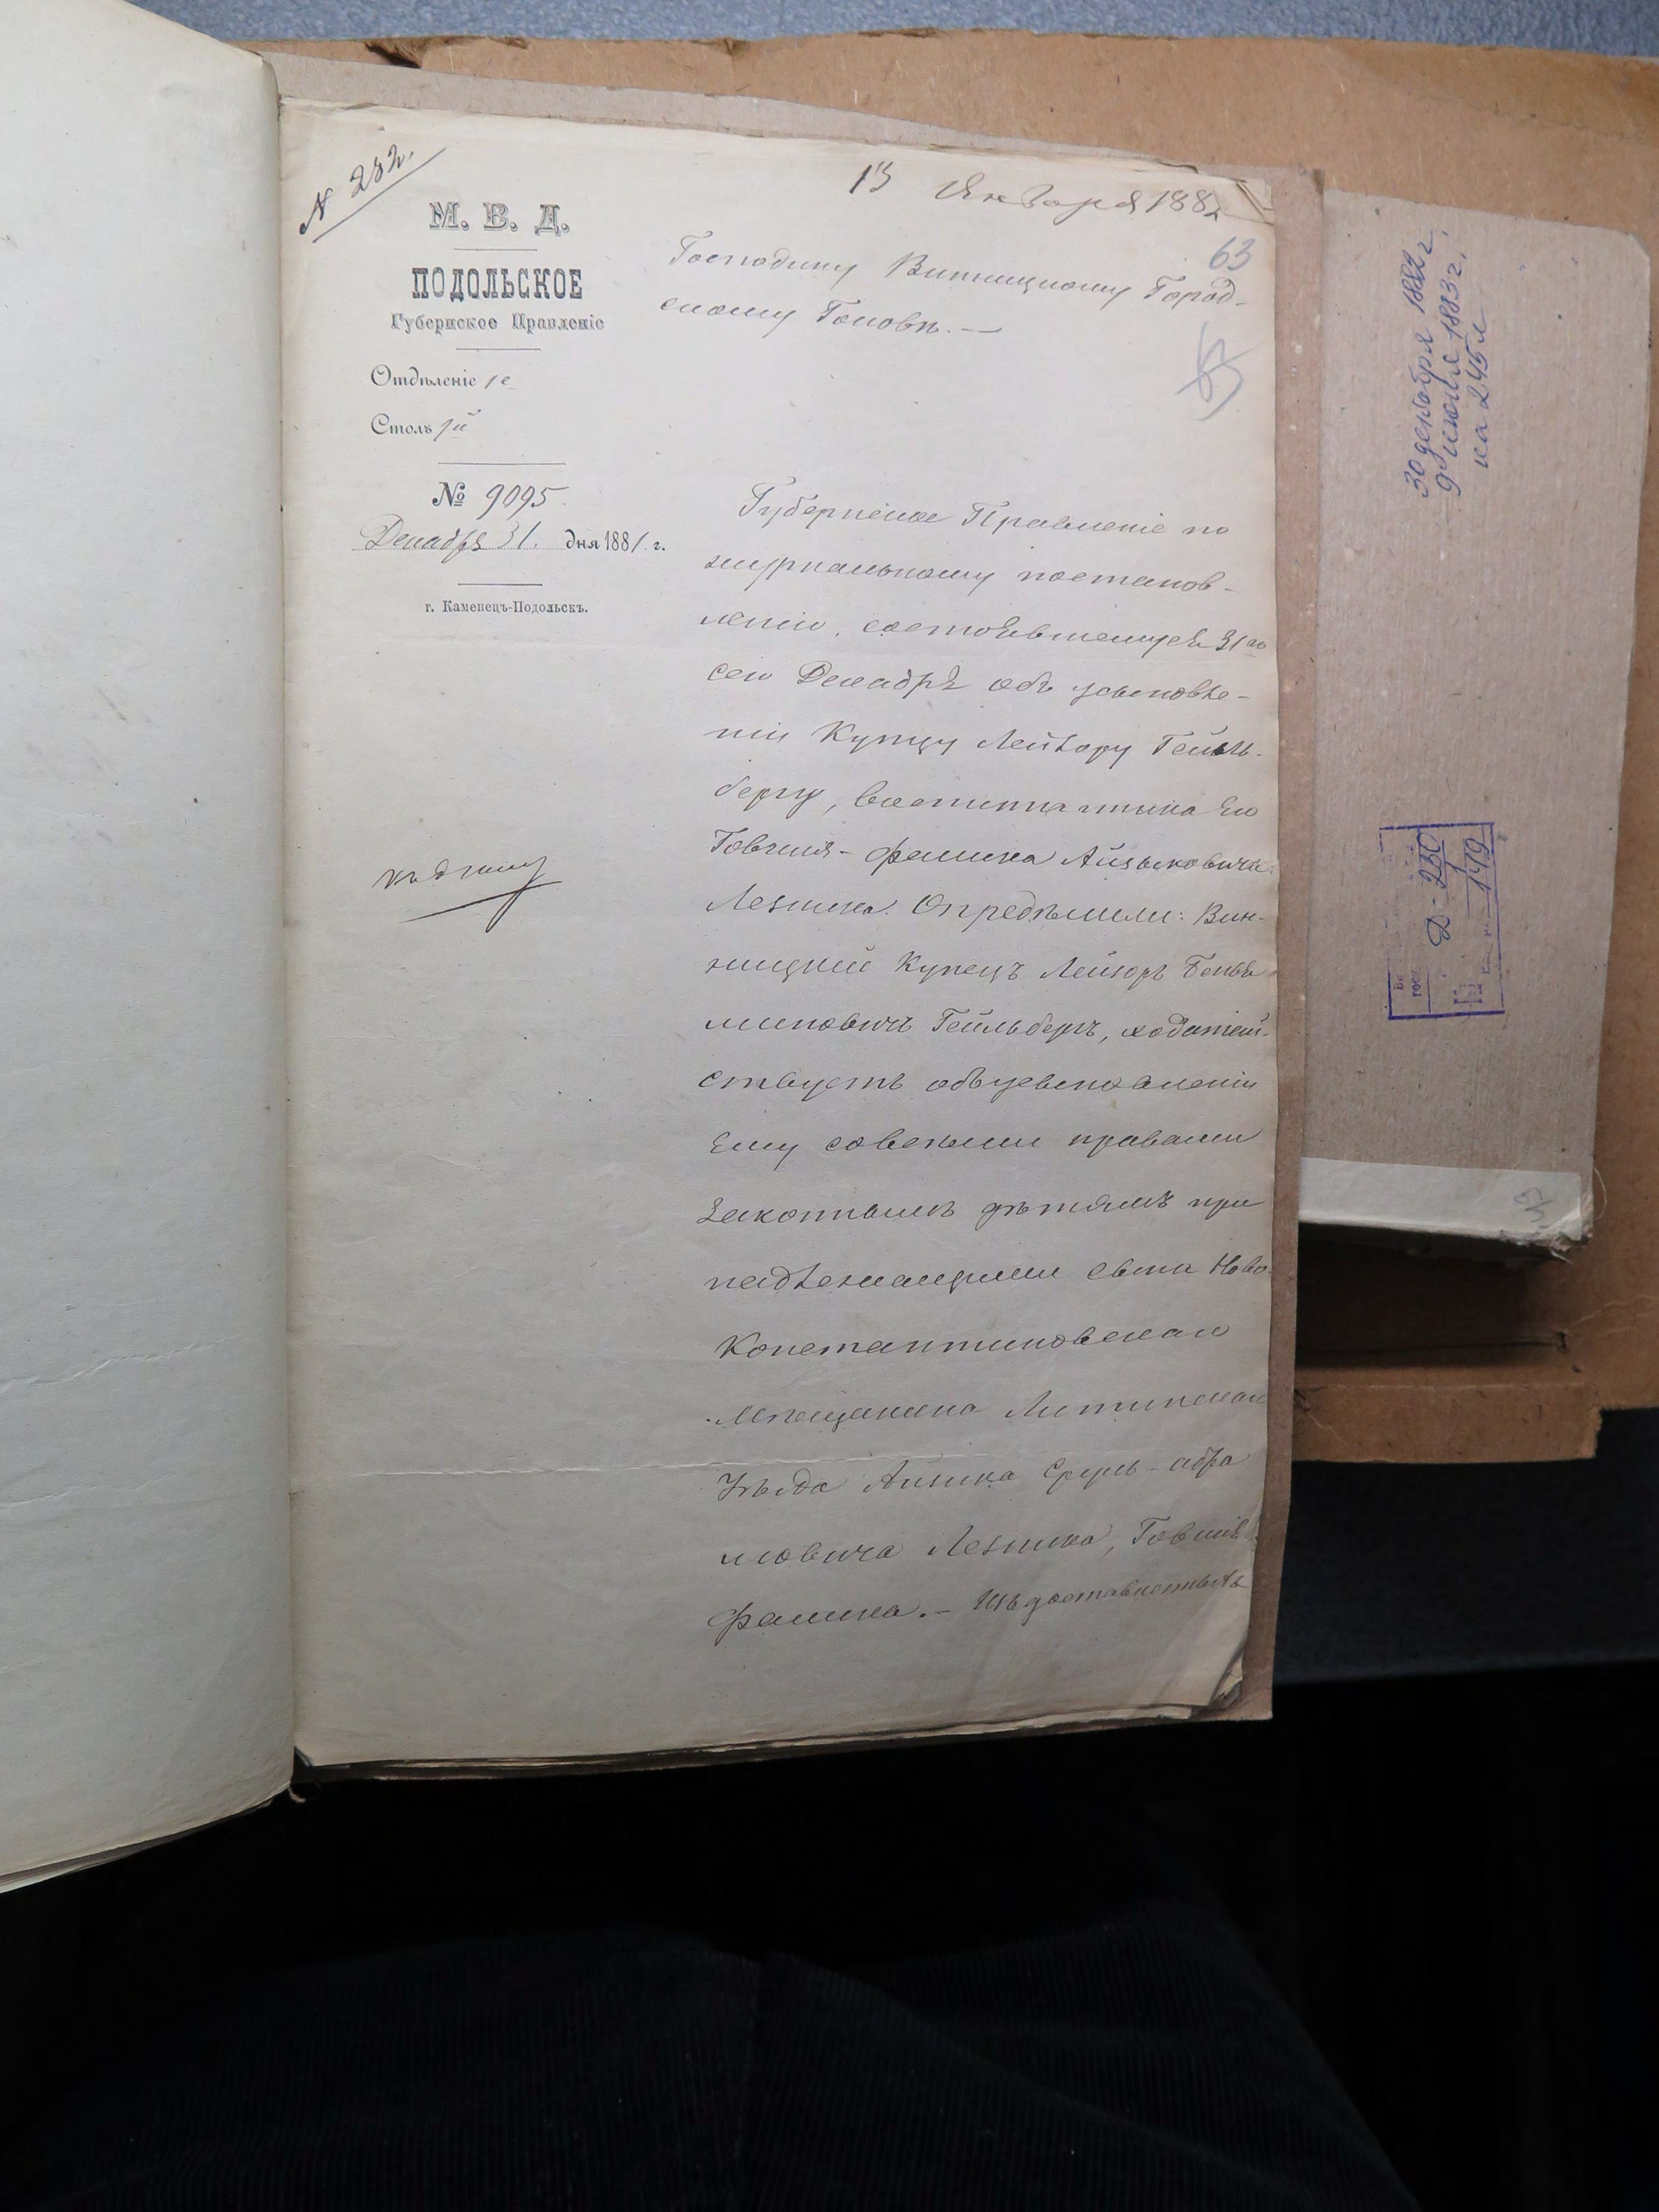 № 282.
13 Января 1882
63
М. В. Д.
ПОДОЛЬСКОЕ
Губернское Правленіе
Отдѣленіе 1е
Столъ 1й
№ 9095.
Декабря 31. дня 1881 г.
г. Каменецъ-Подольскъ.
Господину Винницкому Город-
скому Головѣ. —
Губернское Правленіе по
журнальному постанов-
ленію, состоявшемуся 31го
сего Декабря объ усыновле-
ніи Купцу Лейзору Гейль-
бергу, воспитанника его
Говшія-Фалика Айзиковича
Лезника. Опредѣлили: Вин-
ницкій Купецъ Лейзоръ Бенья
миновичъ Гейльбергъ, ходатай-
ствуетъ объ усыновленіи
ему со всѣми правами
законнымъ дѣтямъ при
надлежащими сына Ново-
Константиновскаго
мѣщанина Литинскаго
Уѣзда Айзика Сруль-Абра
мовича Лезника, Говшія
Фалика. —
30 декабря 1882 г.
9 июля 1883 г.
на 245 л
гос
Д-230